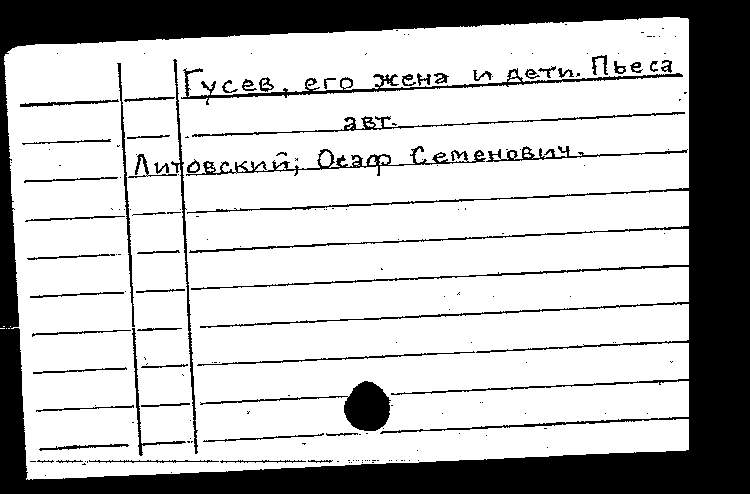 Гусев, его жена и дети. Пьеса
авт.
Литовский, Осаф Семенович.